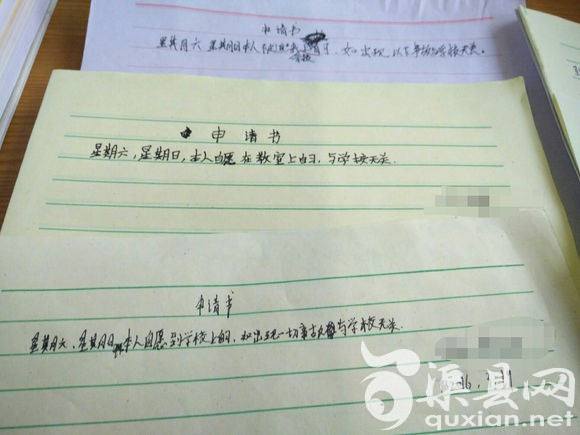 申请书
星期六 星期日本人 如出现 以 与学校无关。
申请书
星期六,星期日,本人自愿在教室上自习,与学校无关.
申请书
星期六、星期日,本人自愿到学校上自习,如出现一切事故与学校无关.
渠县网
quxian.net